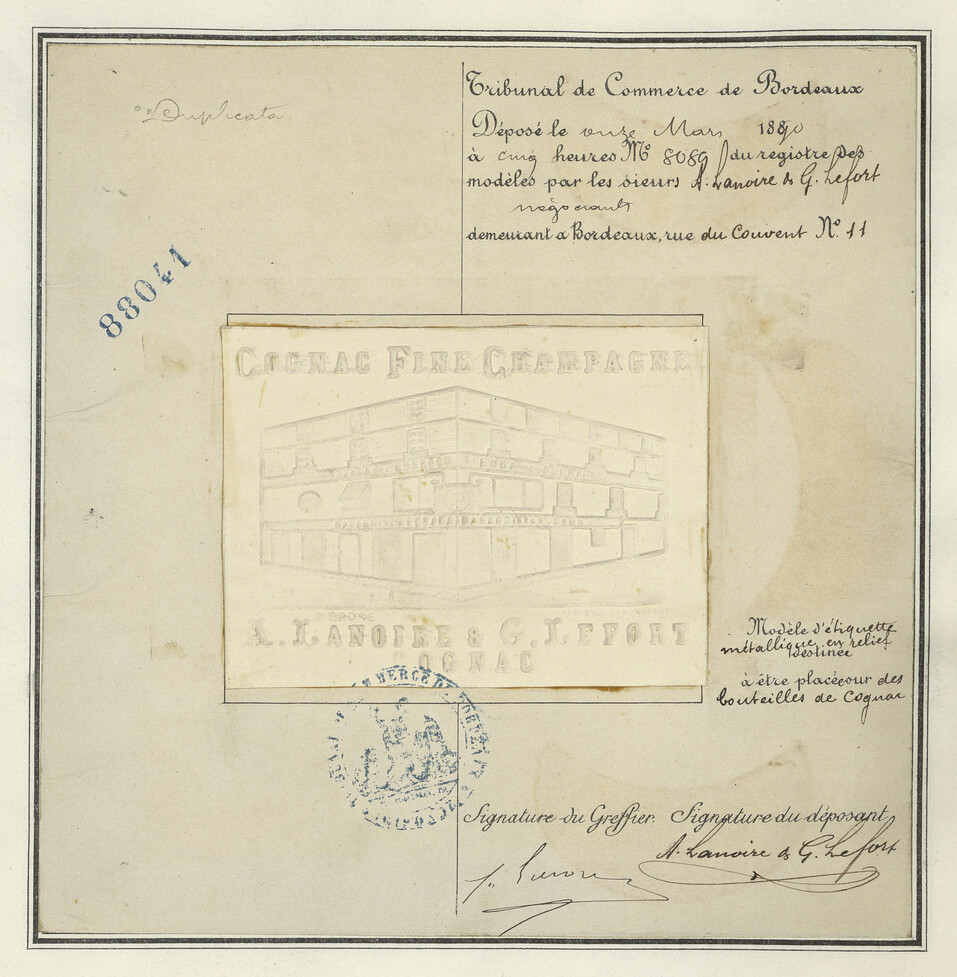 Duplicata
Tribunal de Commerce de Bordeaux
Déposé le onze Mars 1890
à cinq heures No 8089 du registre des
modèles par les sieurs A. Lanoire & G. Lefort
négociants
demeurant a Bordeaux, rue du Couvent No. 11
88041
COGNAC FINE CHAMPAGNE
DÉPOSÉ
A. LANOIRE & G. LEFORT
COGNAC
Modèle d'étiquette
métallique en relief
destinée
à être placée sur des
bouteilles de Cognac
COMMERCE DE BORDEAUX
Signature du Greffier. Signature du déposant
A. Lanoire & G. Lefort